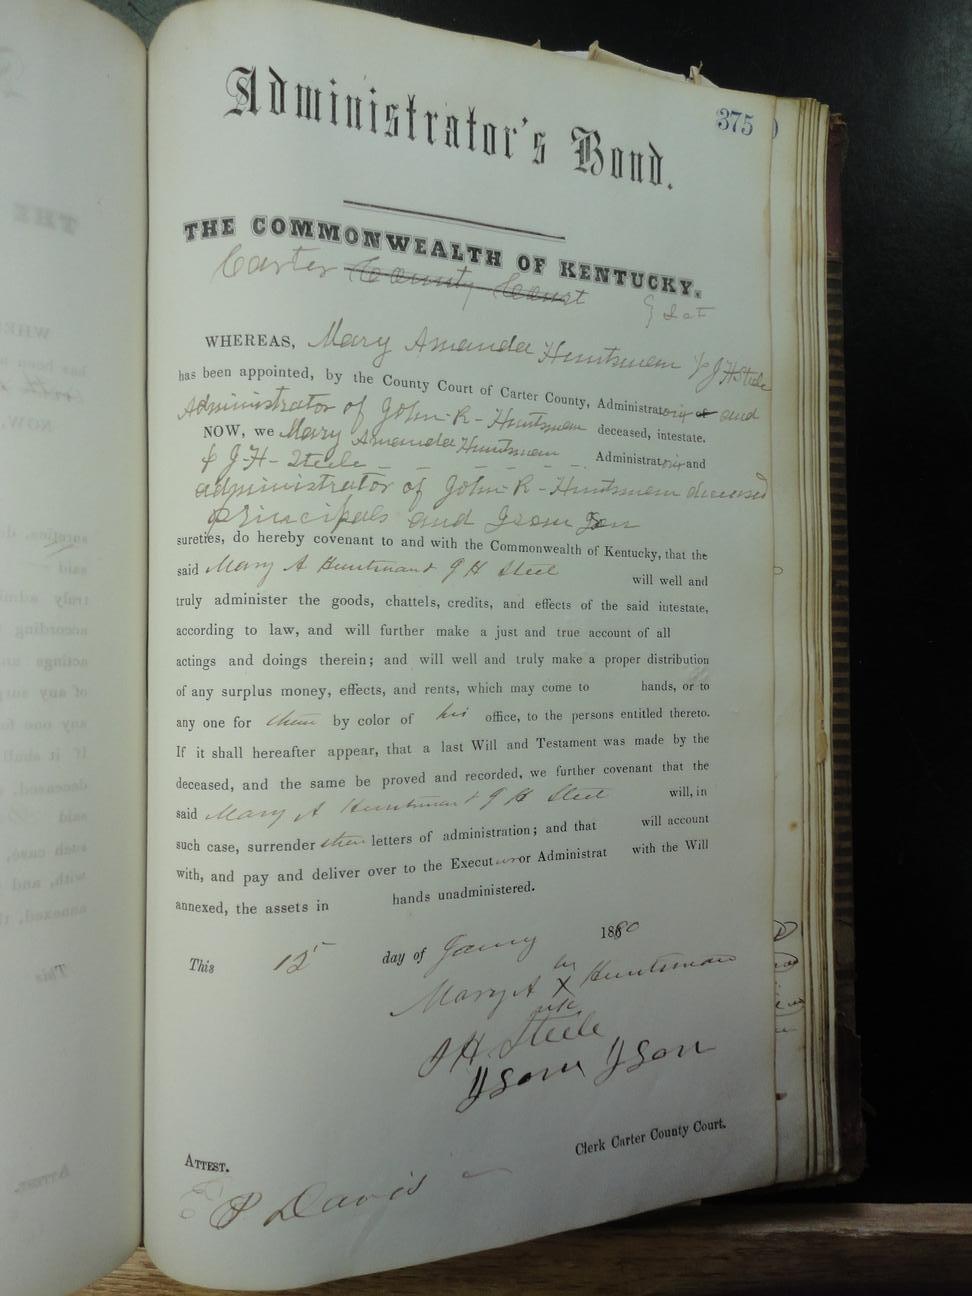 375
Administrator's Bond.
THE COMMONWEALTH OF KENTUCKY.
Carter County Court
Sct
WHEREAS, Mary Amanda Huntsman & J H Steele
has been appointed, by the County Court of Carter County, Administratorix or and
Administrator of John R - Huntsman deceased, intestate.
NOW, we Mary Amanda Huntsman
& J - H - Steele - - - - - - - Administratorix and
administrator of John - R - Huntsman deceased
principals and Isom Ison
sureties, do hereby covenant to and with the Commonwealth of Kentucky, that the
said Mary A Huntsman & J H Steel will well and
truly administer the goods, chattels, credits, and effects of the said intestate,
according to law, and will further make a just and true account of all
actings and doings therein; and will well and truly make a proper distribution
of any surplus money, effects, and rents, which may come to hands, or to
any one for them by color of his office, to the persons entitled thereto.
If it shall hereafter appear, that a last Will and Testament was made by the
deceased, and the same be proved and recorded, we further covenant that the
said Mary A Huntsman & J H Steel will, in
such case, surrender their letters of administration; and that will account
with, and pay and deliver over to the Executor or Administrat with the Will
annexed, the assets in hands unadministered.
This 12 day of Jany 1880
her
Mary A X Huntsman
mk
J H Steele
Isom Ison
Clerk Carter County Court.
ATTEST.
P Davis